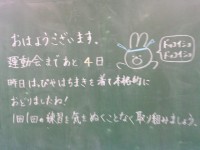 おはようございます。
運動会まであと4日
明日は、ぴそはちまきを着て本格的に
おどりましたね!
1回1回の練習を気をぬくことなく取り組みましょう。
ドッコイショ
ドッコイショ